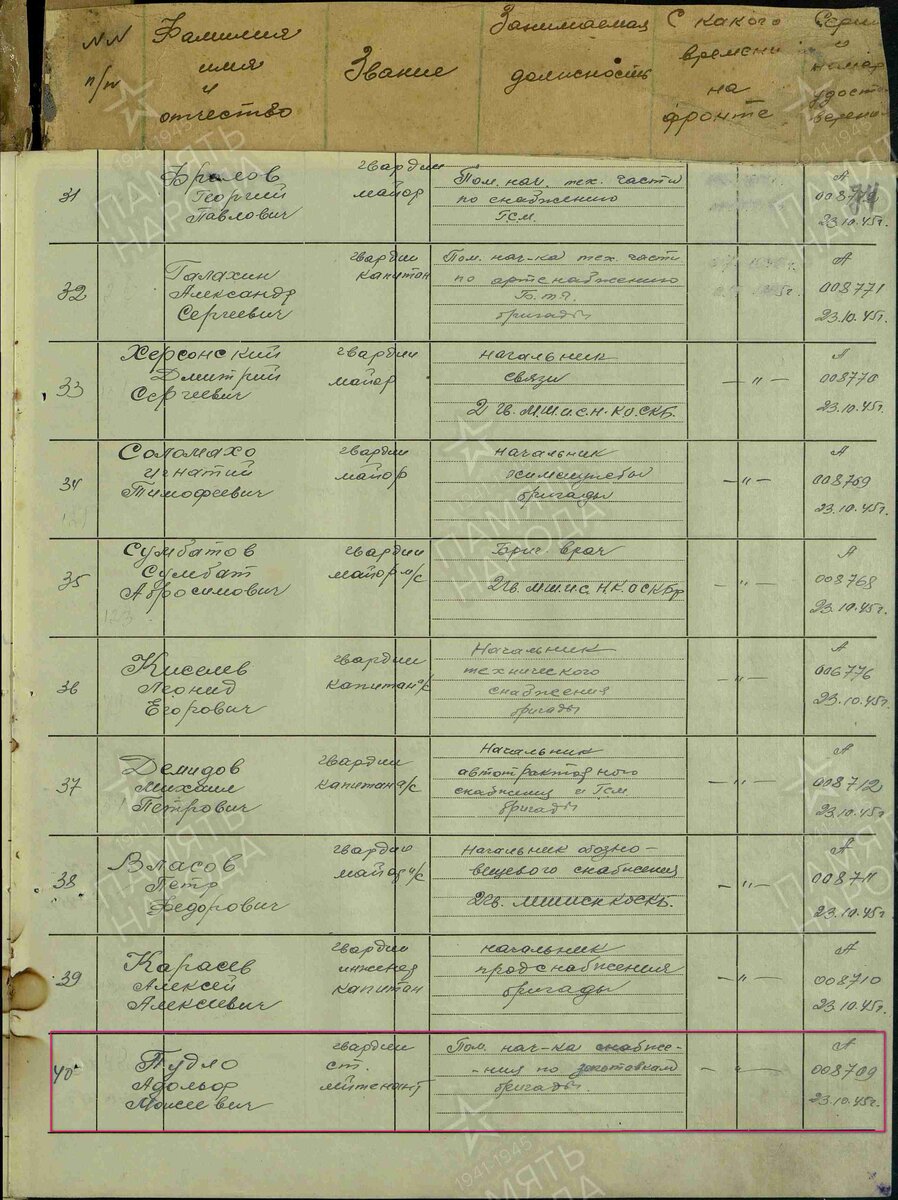 NN п/п
Фамилия имя и отчество
Звание
Занимаемая должность
С какого времени на фронте
Серия и номер удостверения
31
Фролов
Георгий
Павлович
гвардии
майор
Пом. нач. тех. части
по снабжению
ГСМ.
А
23.10.45г.
32
Галахин
Александр
Сергеевич
гвардии
капитан
Пом. нач-ка тех. части
по артснабжению
бригады
А
008771
23.10.45г.
33
Херсонский
Дмитрий
Сергеевич
гвардии
майор
начальник
связи
2 гв. МШИСН.КО.СКБ.
— " —
А
008770
23.10.45г.
34
Соломахо
Игнатий
Тимофеевич
гвардии
майор
начальник
химслужбы
бригады
— " —
А
008769
23.10.45г.
35
Сумбатов
Сумбат
Абросимович
гвардии
майор м/с
Бриг. врач
2гв. МШИСН.К.О СКБр
— " —
А
008768
23.10.45г.
123
36
Киселев
Леонид
Егорович
гвардии
капитан и/с
Начальник
технического
снабжения
бригады
— " —
А
006776
23.10.45г.
37
Демидов
Михаил
Петрович
гвардии
капитан а/с
Начальник
автотракторного
снабжения и ГСМ
бригады
— " —
А
008712
23.10.45г.
38
Власов
Петр
Федорович
гвардии
майор и/с
Начальник обозно-
вещевого снабжения
2гв. МШИСНКОСКБ.
— " —
А
008711
23.10.45г.
39
Карасев
Алексей
Алексеевич
гвардии
инженер
капитан
начальник
продснабжения
бригады
— " —
А
008710
23.10.45г.
40
Пудло
Адольф
Моисеевич
гвардии
ст.
лейтенант
Пом. нач-ка снабже-
-ния по заготовкам
бригады
— " —
А
008709
23.10.45г.
ПАМЯТЬ
НАРОДА
1941-1945